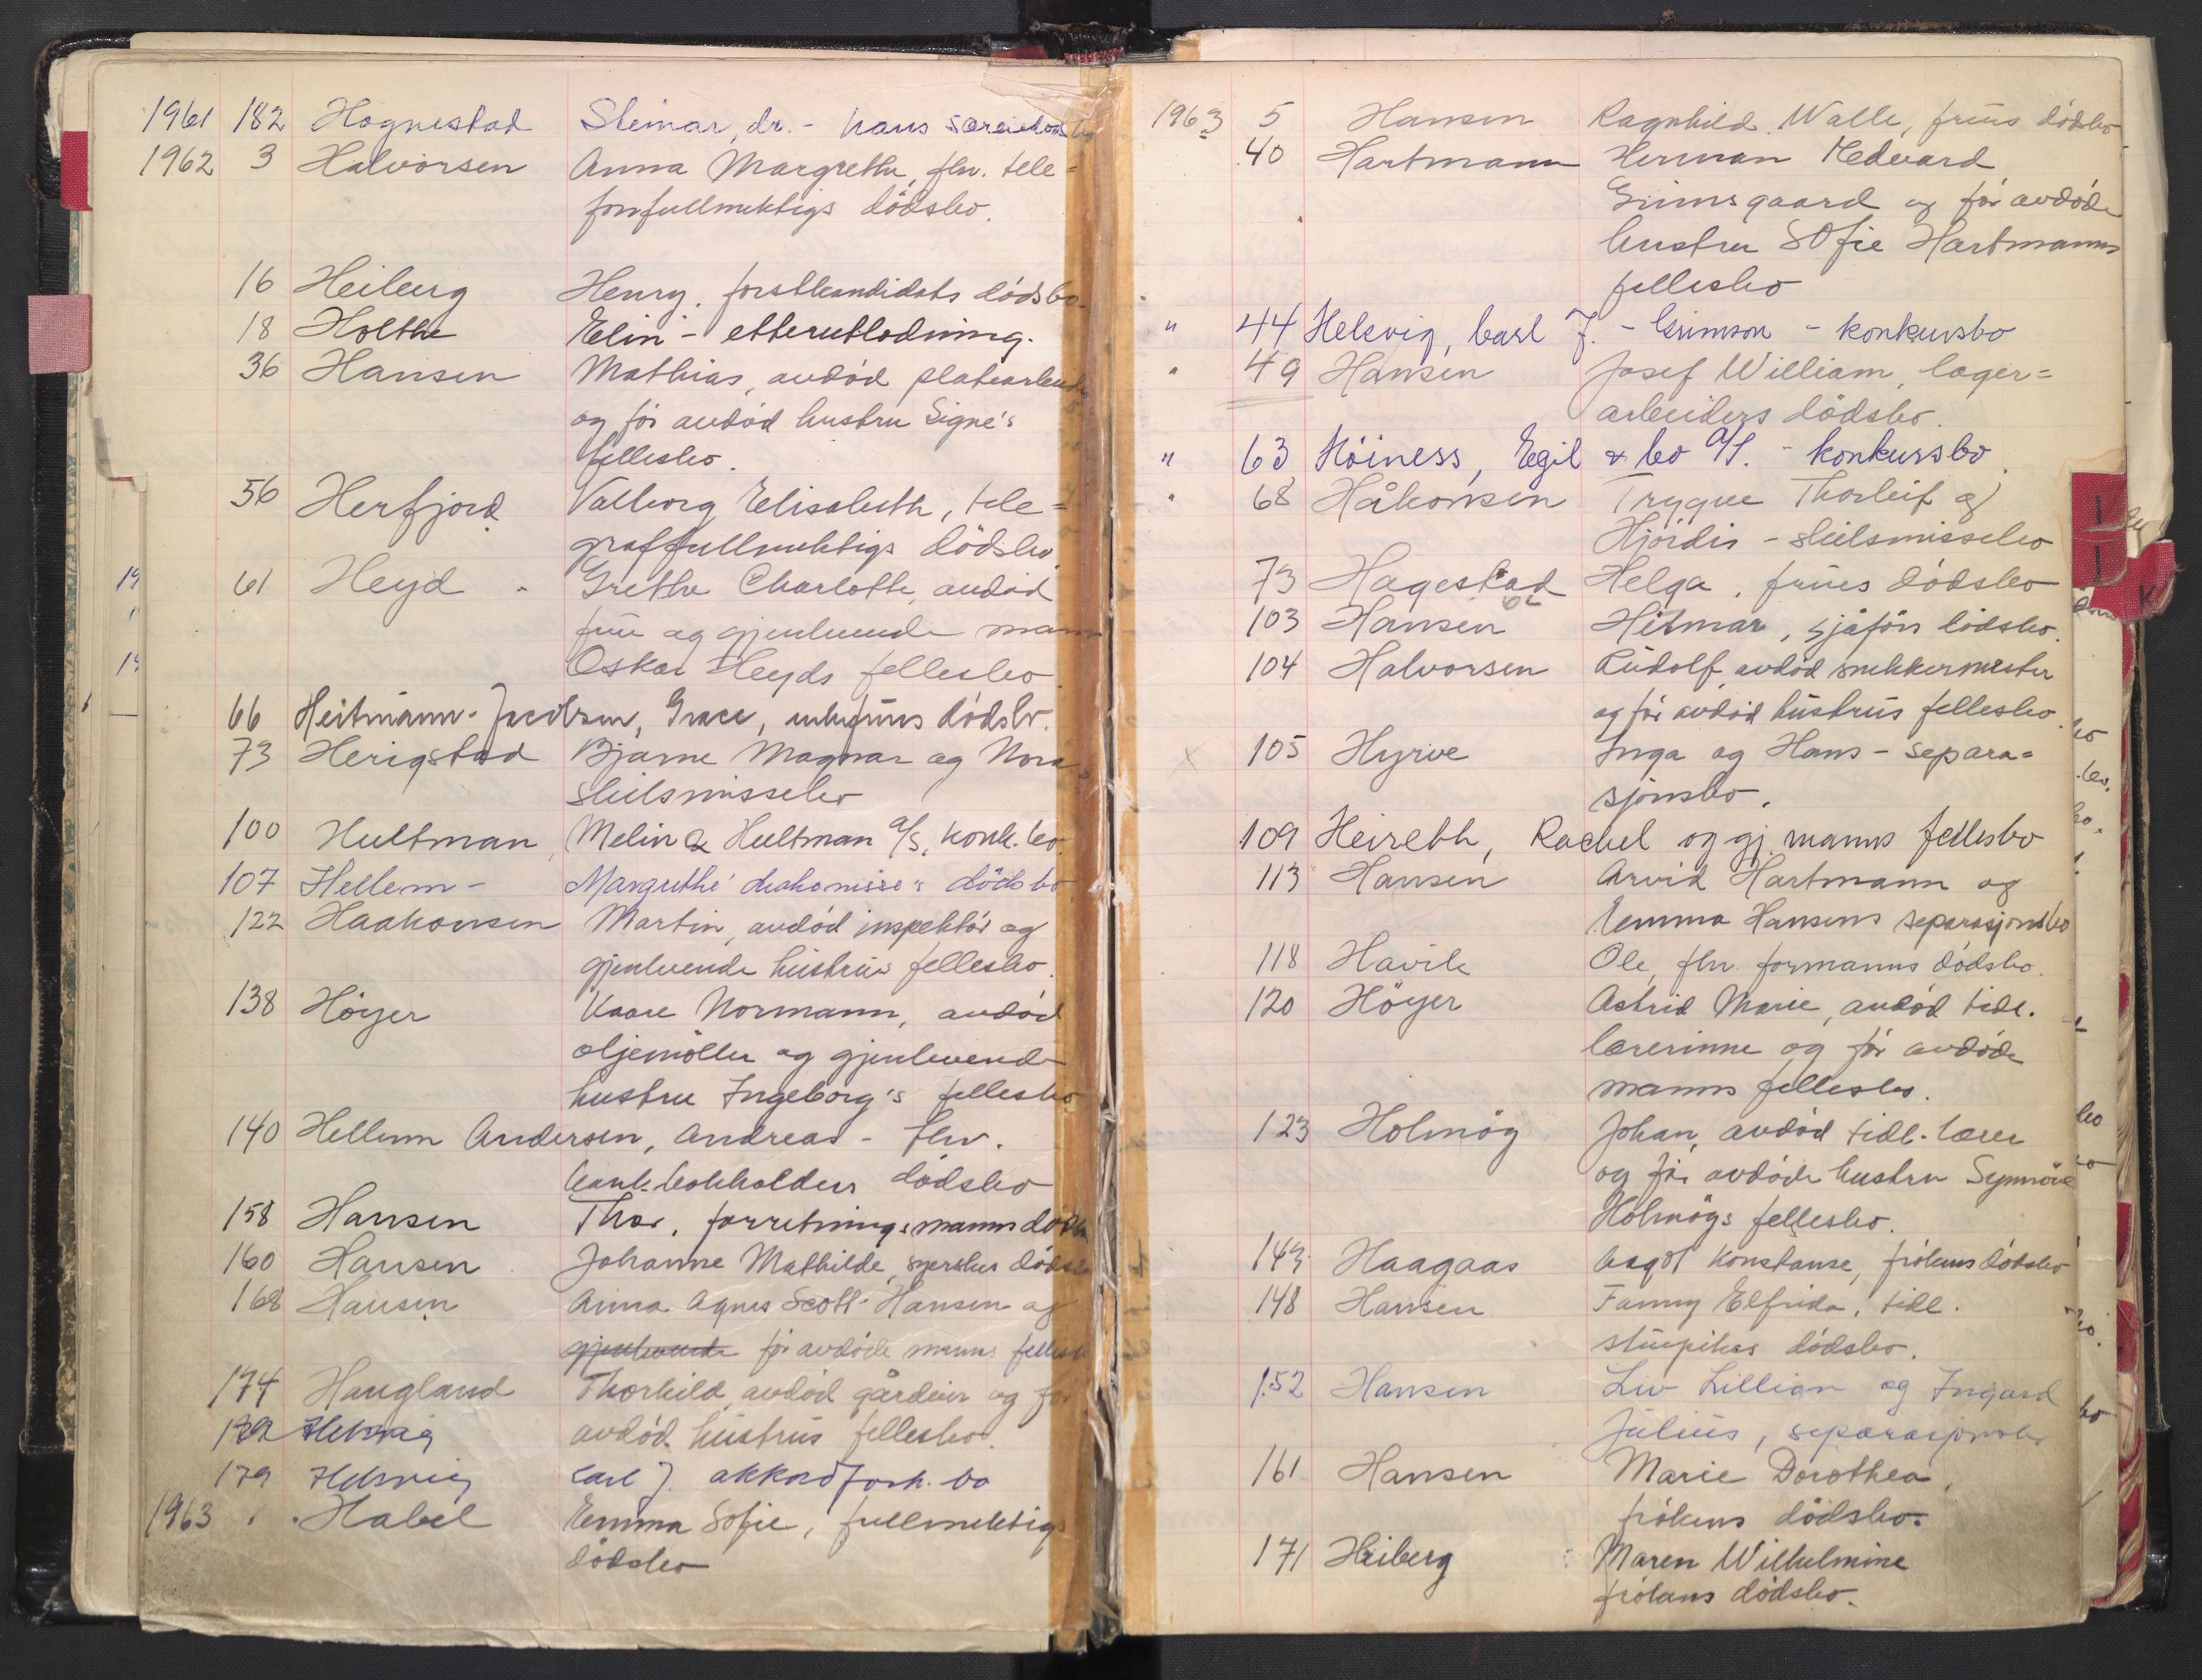 1961 182 Hognestad Steinar, dr. - hans særeiedødsbo
1962 3 Halvorsen Anna Margrethe, fhv. tele=
fonfullmektigs dödsbo.
16 Heiberg Henry, forstkandidats dödsbo
18 Holthe Elin - etterutlodning.
36 Hansen Mathias, avdöd platearbeider
og för avdöd hustru Signe's
fellesbo.
56 Herfjord Valborg Elisabeth, tele=
graffullmektigs dödsbo
61 Heyd Grethe Charlotte, avdöd
frue og gjenlevende mann
Oskar Heyds fellesbo
66 Heitmann-Jacobsen, Grace, enkefrues dödsbo.
73 Herigstad Bjarne Magnar og Nora
skilsmissebo
100 Hultman, Melin & Hultman A/S, konk.bo.
107 Hellem - Margrethe diakonisse's dödsbo
122 Haakonsen Martin, avdöd inspektör og
gjenlevende hustrus fellesbo.
138 Höyer Kaare Normann, avdöd
oljemöller og gjenlevende
hustru Ingeborg's fellesbo
140 Hellem Andersen, Andreas - fhv.
bankbokholders dödsbo
158 Hansen Thor, forretningsmanns dödsbo
160 Hansen Johanne Mathilde, syerskes dödsbo
168 Hansen Anna Agnes Scott-Hansen og
gjenlevende för avdöde manns fellesbo
174 Haugland Thorkild, avdöd gårdeier og för
avdöd hustrus fellesbo.
179 Helsvig
179 Helsvig Carl J. akkordforh. bo
1963 1 Habel Emma Sofie, fullmektigs
dödsbo
1963 5 Hansen Ragnhild Walle, frues dödsbo
40 Hartmann Herman Medvard
Grimsgaard og för avdöde
hustru Sofie Hartmanns
fellesbo
" 44 Helsvig, Carl J. - Grimson - konkursbo
" 49 Hansen Josef William, lager=
arbeiders dödsbo.
" 63 Höiness, Egil & Co A/S. - konkursbo.
" 68 Håkonsen Trygve Thorleif og
Hjördis - skilsmissebo
73 Hagestad Helga, frues dödsbo
103 Hansen Hilmar, sjåförs dödsbo.
104 Halvorsen Rudolf, avdöd snekkermester
og för avdöd hustrus fellesbo.
x 105 Hyrve Inga og Hans - separa=
sjonsbo.
109 Heireth, Rachel og gj. manns fellesbo
113 Hansen Arvid Hartmann og
Emma Hansens separasjonsbo
118 Havik Ole, fhv. formanns dödsbo.
120 Höyer Astrid Marie, avdöd tidl.
lærerinne og för avdöde
manns fellesbo.
123 Holmög Johan, avdöd tidl. lærer
og för avdöde hustru Synnöve
Holmögs fellesbo.
143 Haagaas Aagot Konstanse, frökens dödsbo
148 Hansen Fanny Elfrida, tidl.
stuepikes dödsbo.
152 Hansen Liv Lillian og Ingard
Julius, separasjonsbo
161 Hansen Marie Dorothea,
frökens dödsbo.
171 Heiberg Maren Wilhelmine
frökens dödsbo.
K